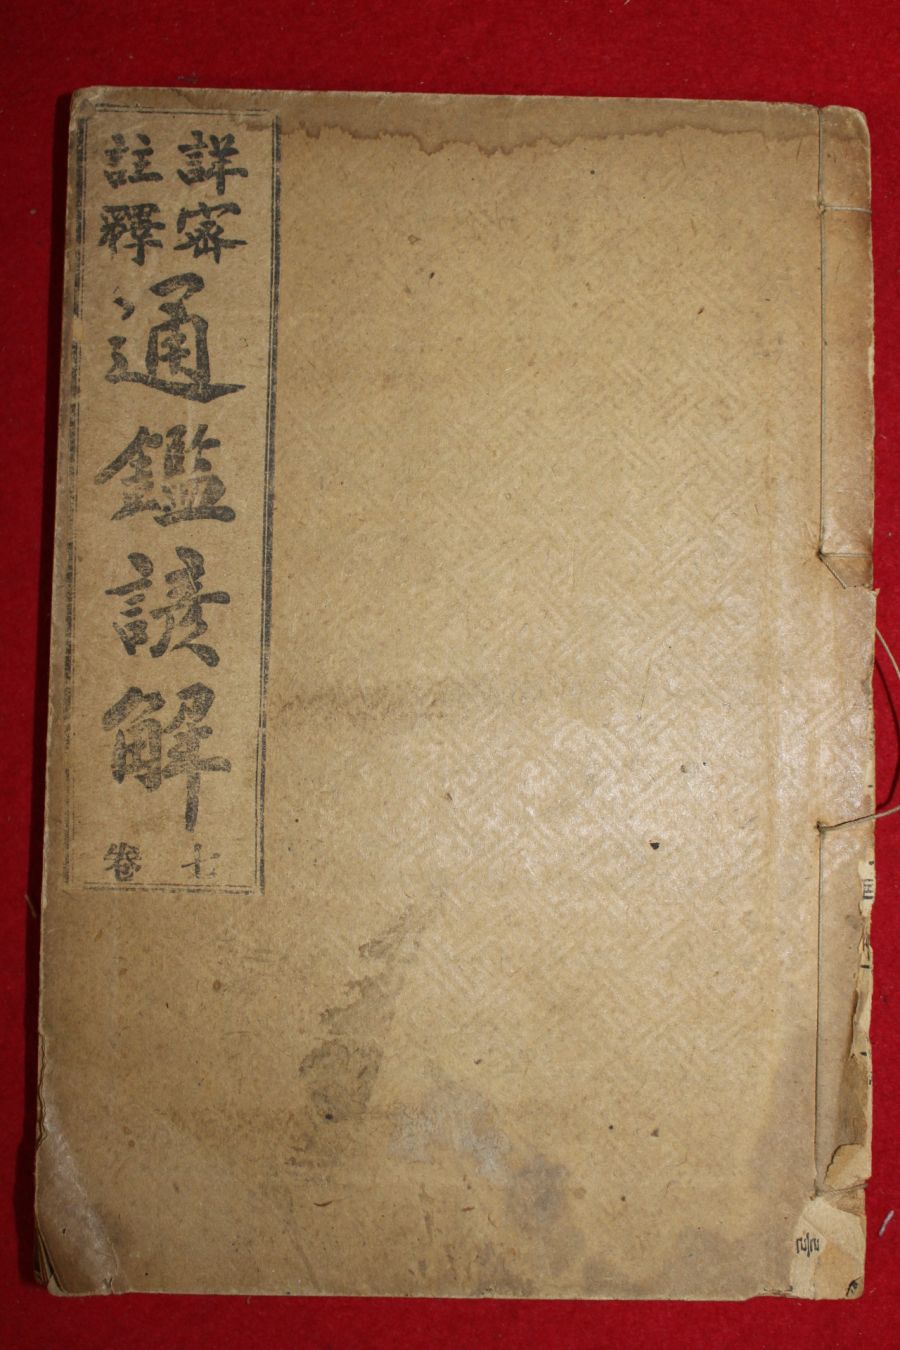 詳密
註釋
通鑑諺解
卷七